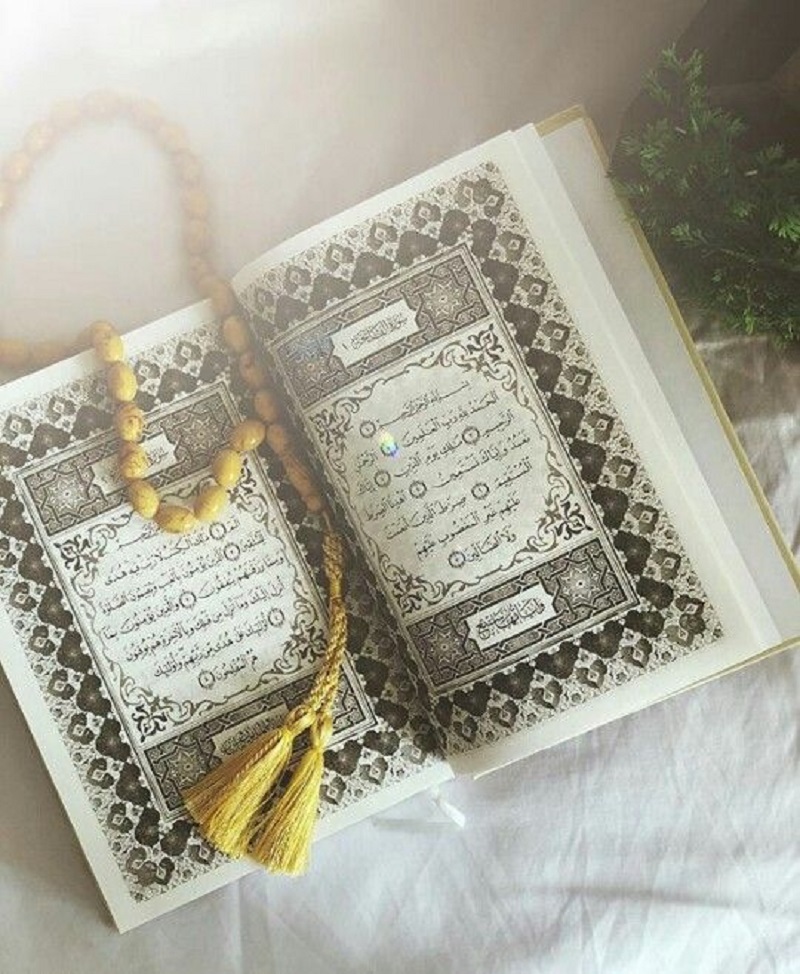 سورة الفاتحة
بسم الله الرحمن الرحيم ١
الحمد لله رب العلمين ٢ الرحمن
الرحيم ٣ ملك يوم الدين ٤ إياك
نعبد وإياك نستعين ٥ اهدنا الصراط
المستقيم ٦ صراط الذين أنعمت
عليهم غير المغضوب عليهم
ولا الضالين ٧
الرحيم
الم ١ ذلك الكتب لا ريب فيه هدى
للمتقين ٢ الذين يؤمنون بالغيب ويقيمون الصلوة
ومما رزقنهم ينفقون ٣ والذين يؤمنون بما
أنزل إليك وما أنزل من قبلك وبالآخرة هم يوقنون
٤ أولئك على هدى من ربهم وأولئك
هم المفلحون ٥